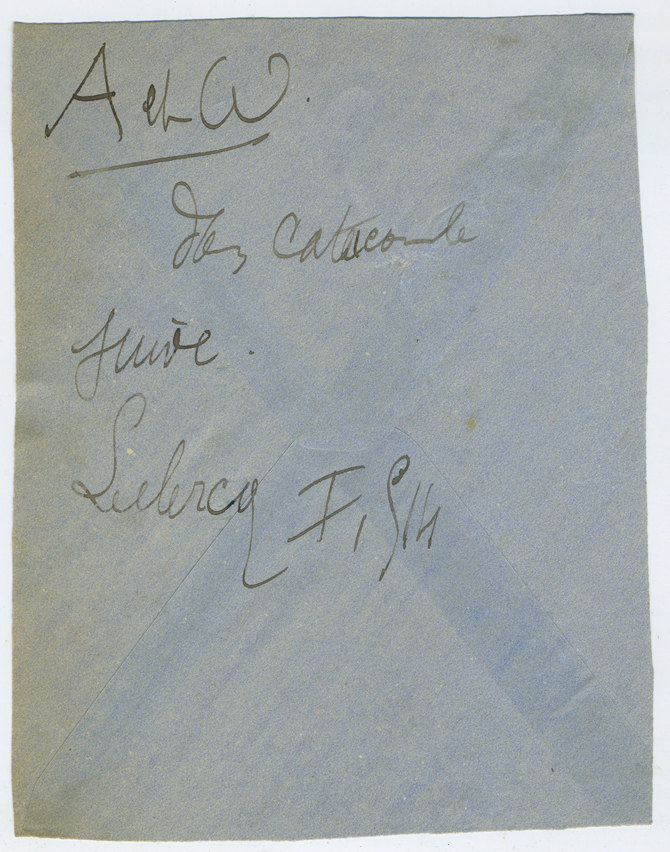 A et ω.
Dans catacombe
juive.
Leclercq I, 514